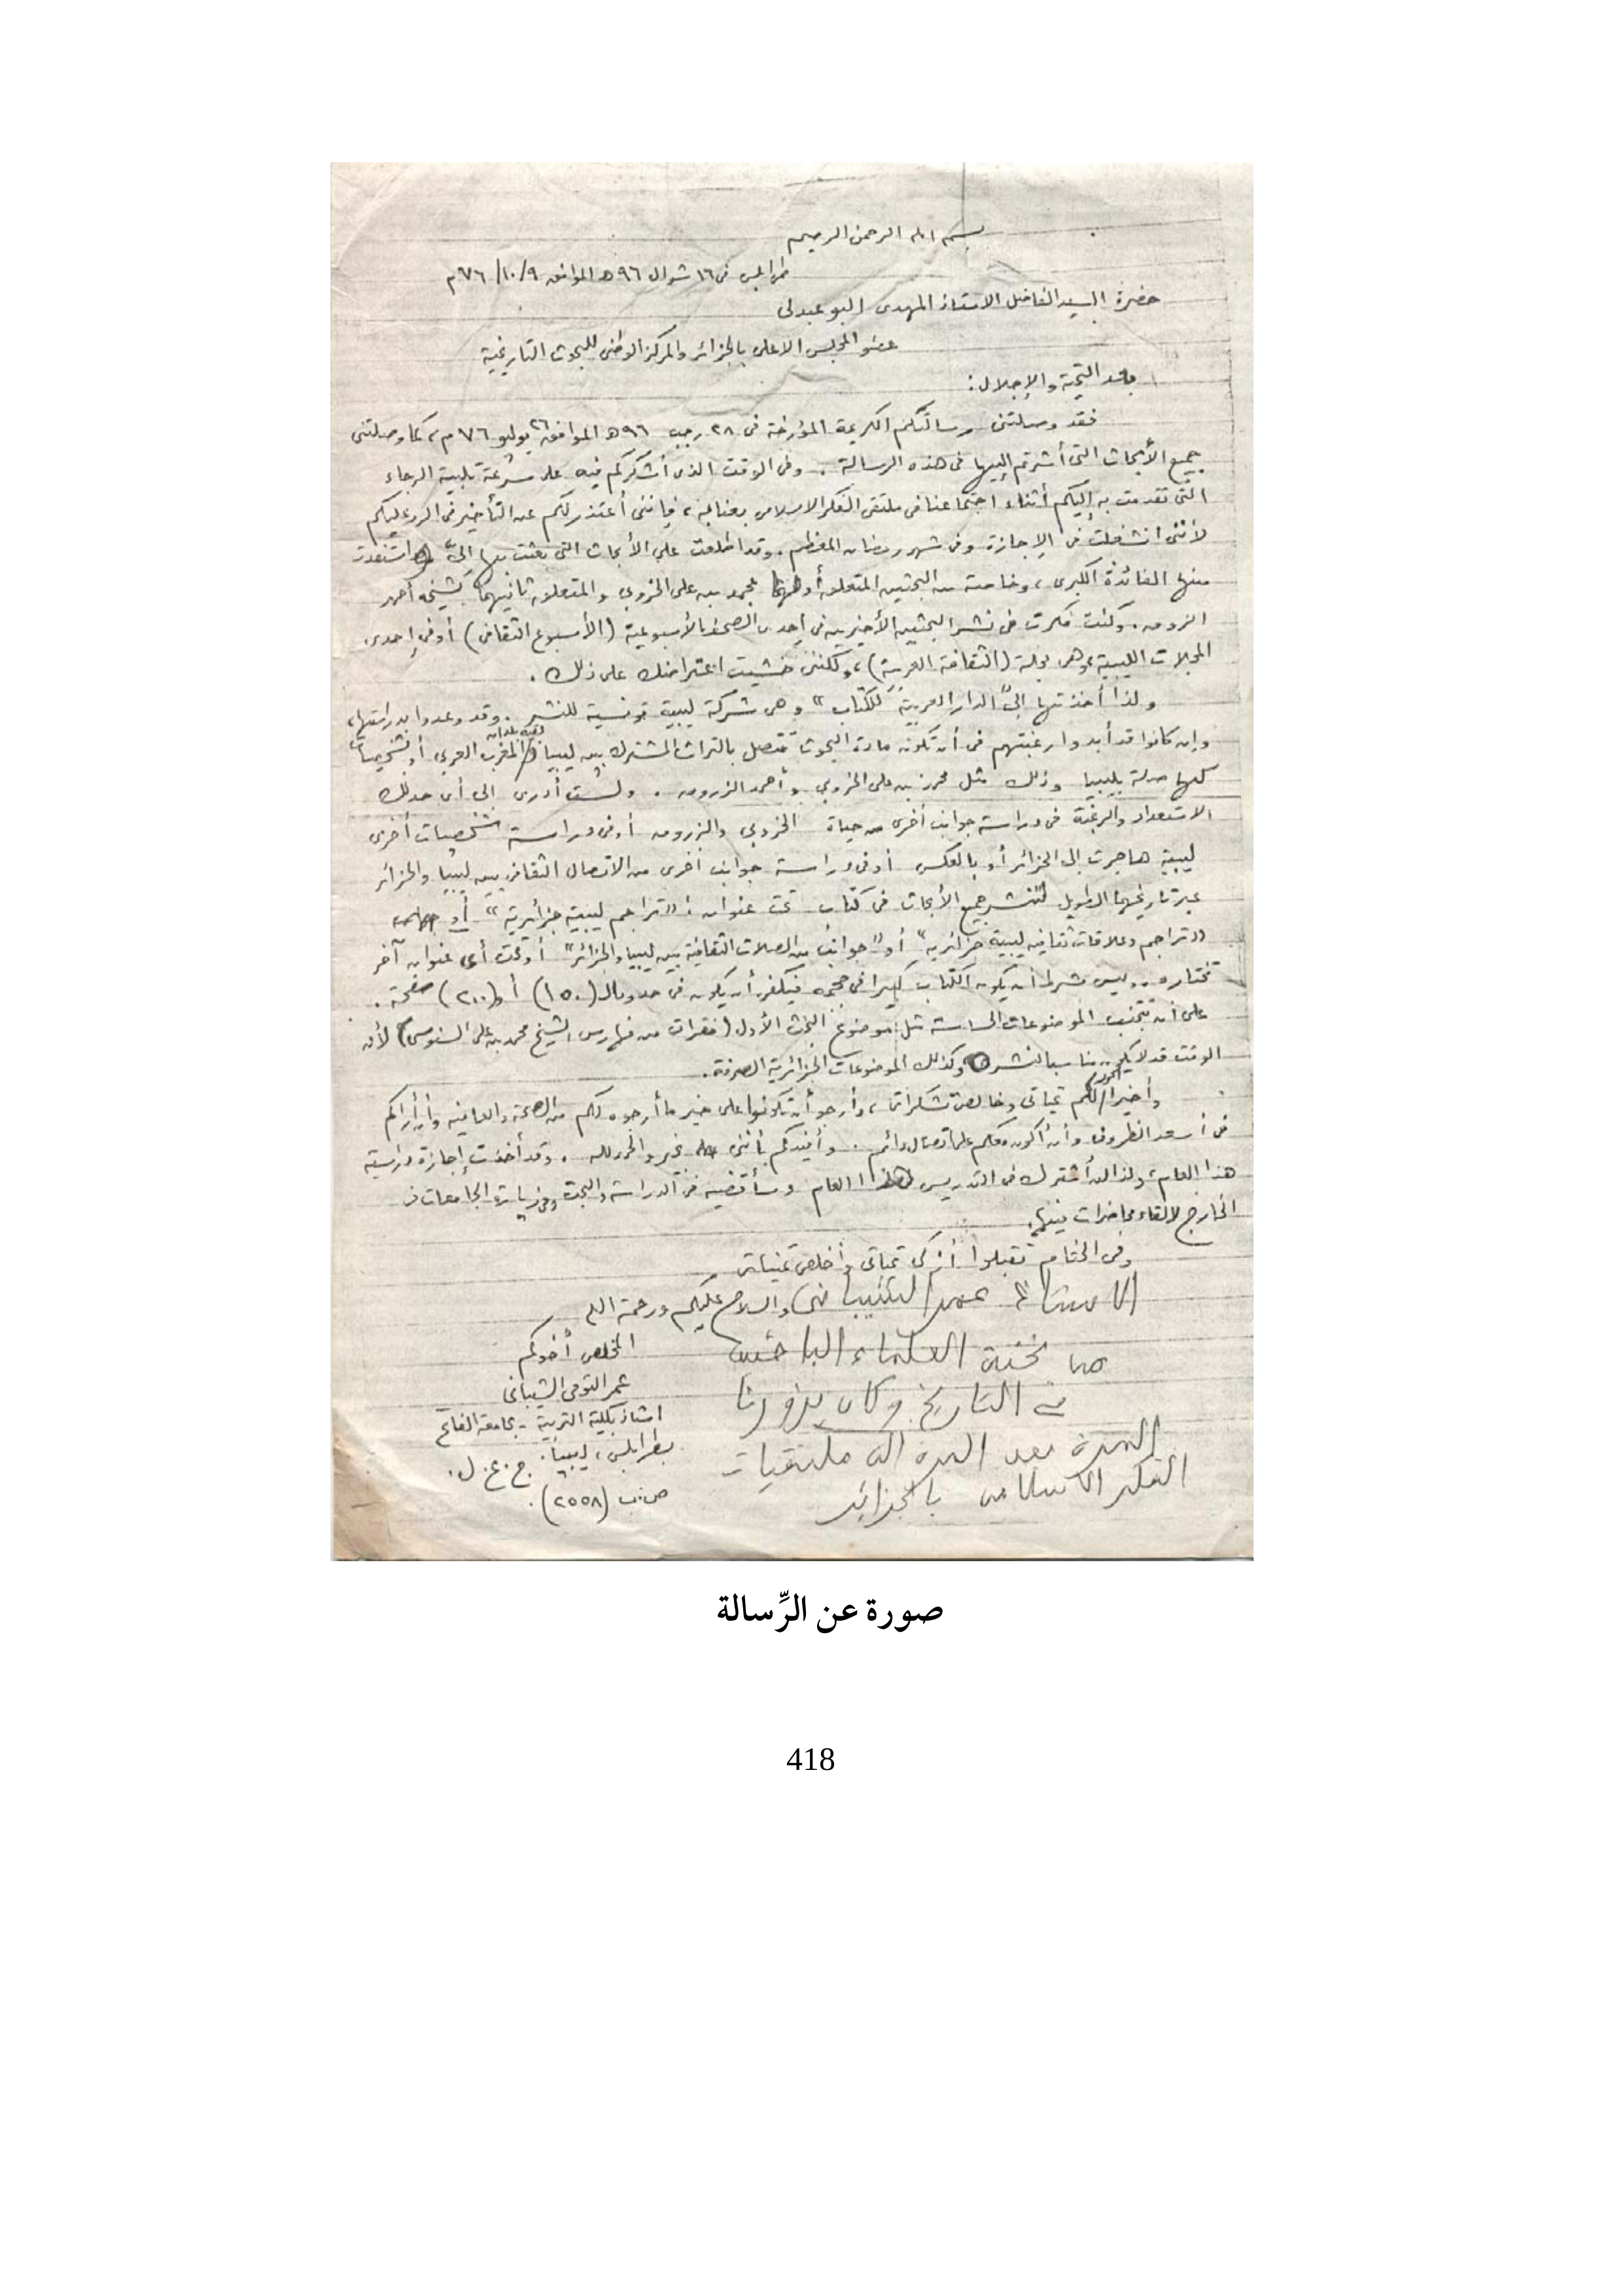 بسم الله الرحمن الرحيم
طرابلس في ١٦ شوال ٩٦ هـ الموافق ٩/١٠/٧٦م
حضرة السيد الفاضل الاستاذ المهدى البوعبدلى
عضو المجلس الاعلى بالجزائر والمركز الوطنى للبحوث التاريخية
بعد التحية والإجلال:
فقد وصلتنى رسالتكم الكريمة المؤرخة فى ٢٨ رجب ٩٦ هـ الموافق ٢٦ يوليو ٧٦ م، كما وصلتنى
جميع الأبحاث التى أشرتم إليها فى هذه الرسالة. وفى الوقت الذى أشكركم فيه على سرعة تلبية الرجاء
التى تقدمت به إليكم أثناء اجتماعنا فى ملتقى الفكر الاسلامى بعنابة، فإننى أعتذر لكم عن التأخير فى الرد عليكم
لأننى انشغلت فى الإجازة وفى شهر رمضان المعظم. وقد اطلعت على الأبحاث التى بعثت بها إلىّ واستفدت
منها الفائدة الكبرى، وخاصة من البحثين المتعلق أولهما بمحمد بن على الخروبي والمتعلق ثانيهما بشيخه أحمد
الزروق. وكنت فكرت فى نشر البحثين الأخيرين فى إحدى الصحف الأسبوعية (الأسبوع الثقافى) أو فى إحدى
المجلات الليبية وهى مجلة (الثقافة العربية)، ولكننى خشيت اعتراضك على ذلك.
ولذا أخذتها إلى "الدار العربية للكتاب" وهى شركة ليبية تونسية للنشر. وقد وعدوا بدراستها،
وإن كانوا قد أبدوا رغبتهم فى أن تكون مادة البحوث تتصل بالتراث المشترك بين ليبيا وبقية بلدان المغرب العربي أو بشخصيات
لها صلة بليبيا وذلك مثل محمد بن على الخروبي وأحمد الزروق. ولست أدرى إلى أى حد لك
الاستعداد والرغبة فى دراسة جوانب أخرى من حياة الخروبي والزروق أو فى دراسة شخصيات أخرى
ليبية هاجرت إلى الجزائر أو بالعكس أو فى دراسة جوانب أخرى من الاتصال الثقافى بين ليبيا والجزائر
عبر تاريخهما الطويل لتنشر جميع الأبحاث فى كتاب تحت عنوان: "تراجم ليبية جزائرية" أو
"تراجم وعلاقات ثقافية ليبية جزائرية" أو "جوانب من الصلات الثقافية بين ليبيا والجزائر" أو تحت أى عنوان آخر
تختاره. وليس شرطا أن يكون الكتاب كبيرا فى حجمه فيكفى أن يكون فى حدود الـ (١٥٠) أو (٢٠٠) صفحة.
على أن تتجنب الموضوعات الحساسة مثل موضوع البحث الأول (فقرات من فهارس الشيخ محمد بن على السنوسى) لأن
الوقت قد لا يكون مناسبا لنشره وكذلك الموضوعات الجزائرية الصرفة.
وأخيرا لكم تحياتى وخالص تشكراتى، وأرجو أن تكونوا على خير ما أرجوه لكم من الصحة والعافية وأن أراكم
فى أسعد الظروف وأن أكون معكم على اتصال دائم. وأفيدكم بأننى بخير والحمد لله. وقد أخذت إجازة دراسية
هذا العام، ولذا لن أشترك فى التدريس هذا العام وسأقضيه فى الدراسة والبحث وفى زيارة الجامعات فى
الخارج لإلقاء محاضرات فيها.
وفى الختام تقبلوا أزكى تحياتى وأخلص تمنياتى
والسلام عليكم ورحمة الله
المخلص أخوكم
عمر التومى الشيبانى
استاذ بكلية التربية - بجامعة الفاتح
بطرابلس، ليبيا. ج.ع.ل.
ص.ب (٢٥٥٨).
الاستاذ عمر الشيباني
من نخبة العلماء الباحثين
في التاريخ وكان يزورنا
المرة بعد المرة في ملتقيات
الفكر الاسلامي بالجزائر
صورة عن الرِّسالة
418